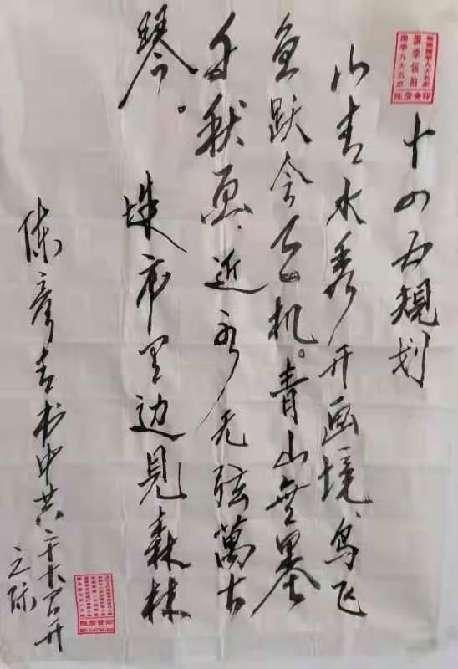 十四五規划
山青水秀开画境、鸟飞
鱼跃含天机。青山無墨
千秋画、近水无弦萬古
琴。
城市里边見森林
书中共二十大召开
之际